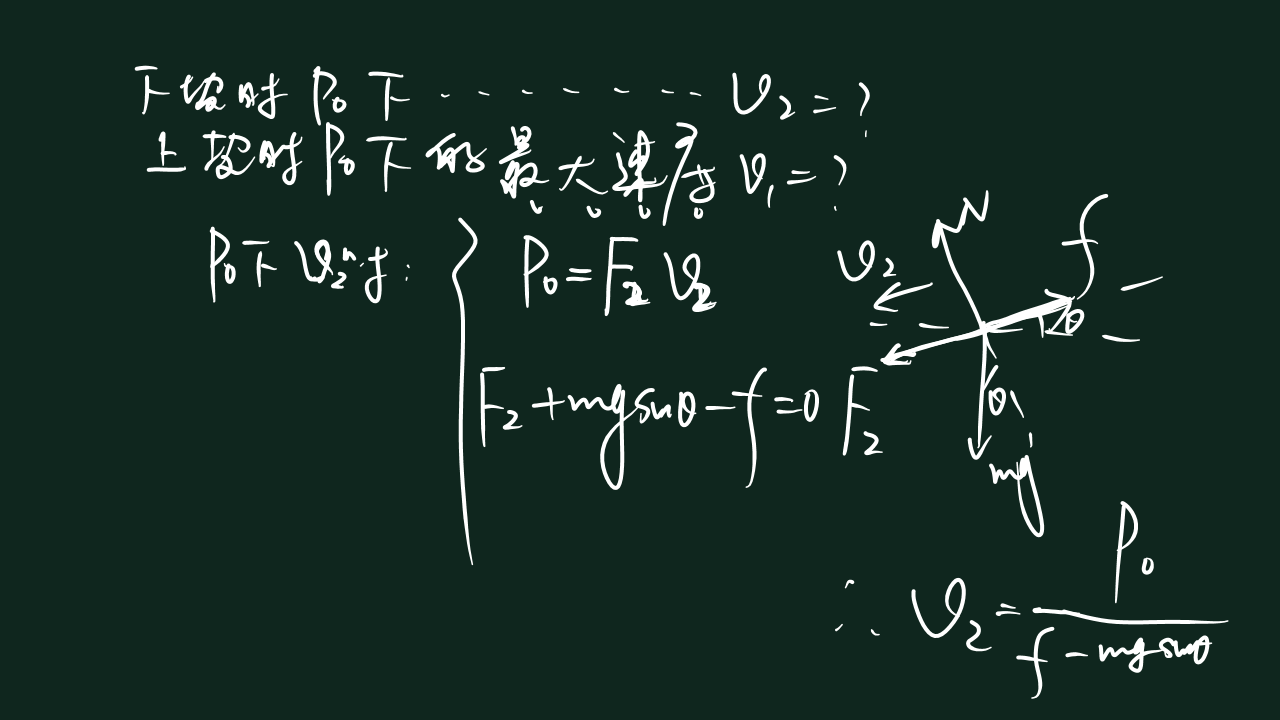 下坡时 P₀ 下 ········ v₂ = ?
上坡时 P₀ 下的最大速度 v₁ = ?
P₀ 下 v₂ 时:
P₀ = F₂ v₂
F₂ + mg sinθ - f = 0
N
f
v₂
θ
F₂
θ
mg
∴ v₂ = P₀ / (f - mg sinθ)